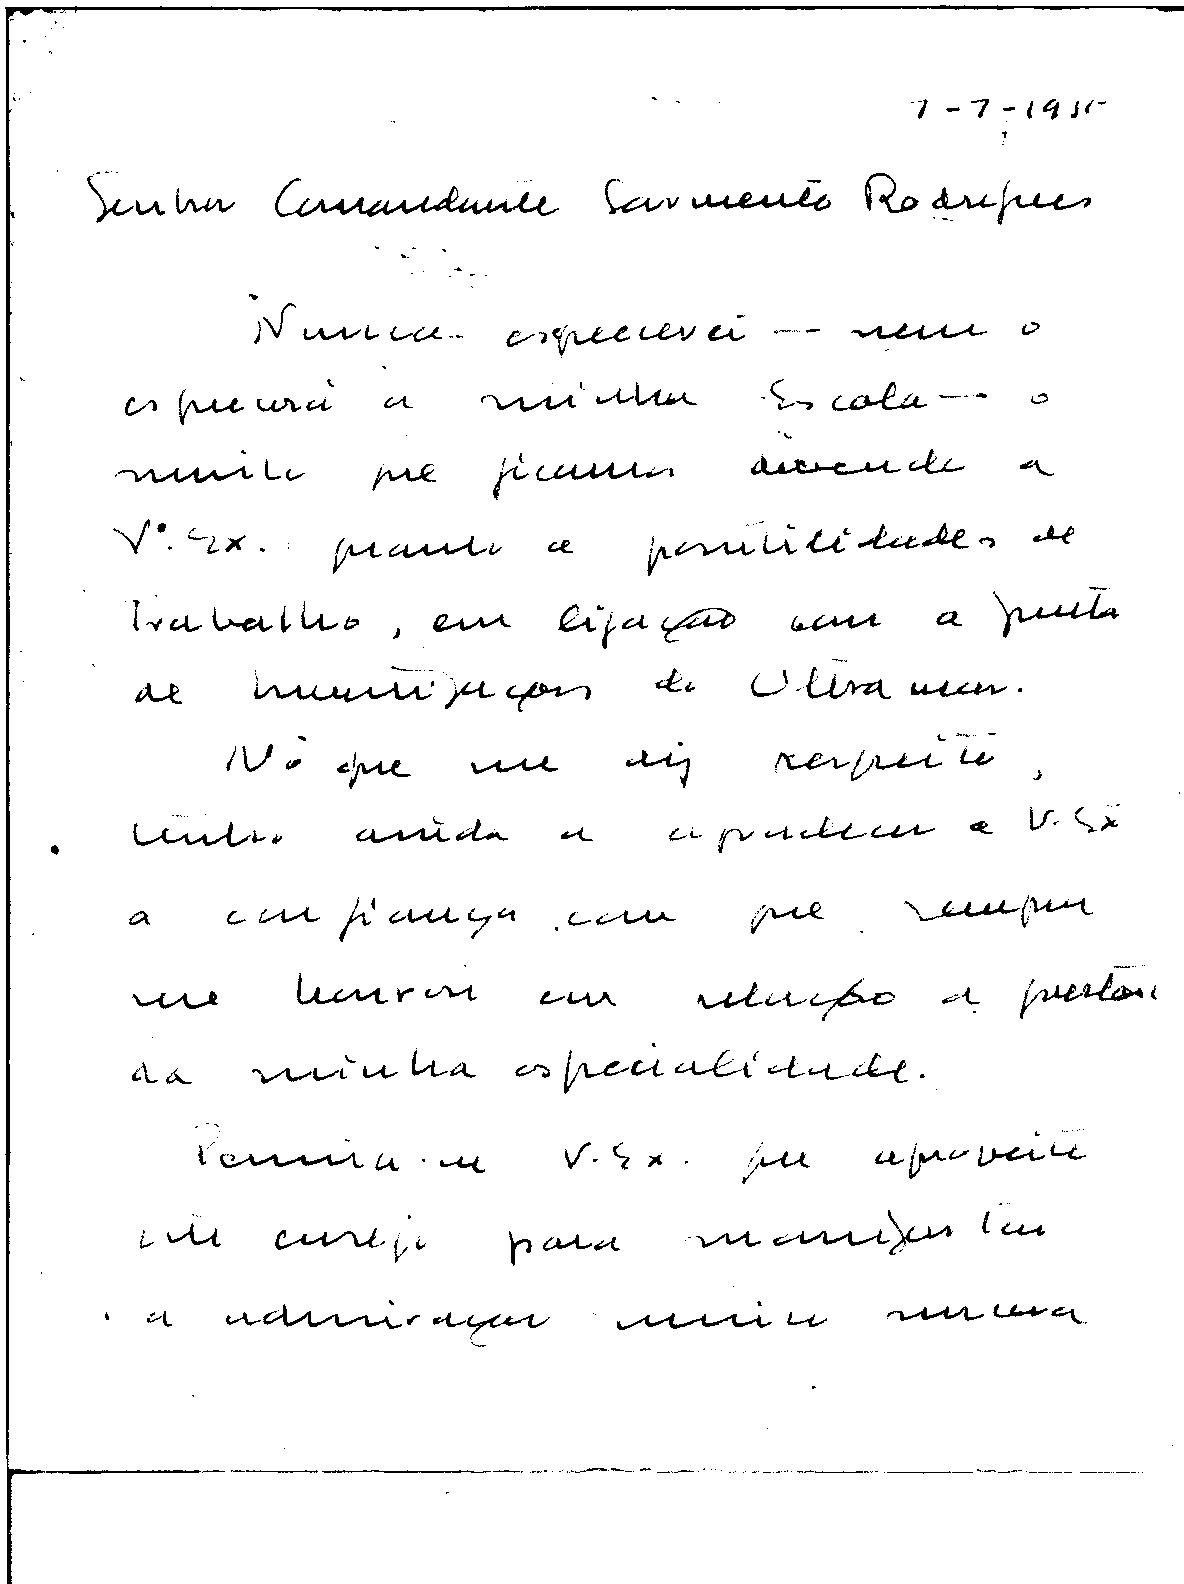 7-7-1955
Senhor Comandante Sarmento Rodrigues
Nunca esquecerei — nem o
esquecerá a minha Escola — o
muito que ficamos devendo a
Vª. Ex. quanto a possibilidades de
trabalho, em ligação com a Junta
de Investigações do Ultramar.
No que me diz respeito,
tenho ainda a agradecer a V. Ex
a confiança com que sempre
me honrou em relação a questões
da minha especialidade.
Permita-me V. Ex. que aproveite
este ensejo para manifestar
a admiração muito sincera